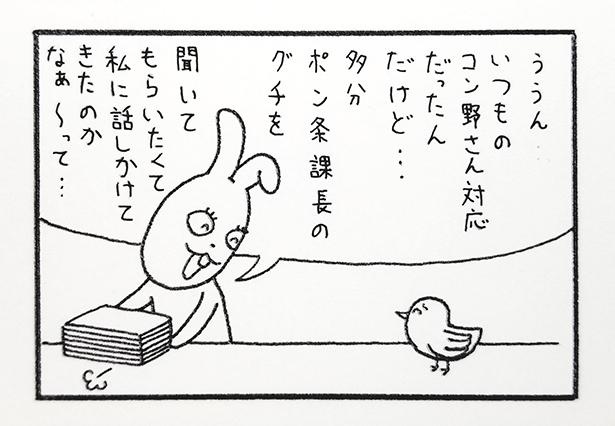 ううん
いつもの
コン野さん対応
だったん
だけど…
多分
ポン条課長の
グチを
聞いて
もらいたくて
私に話しかけて
きたのか
なぁ〜って…